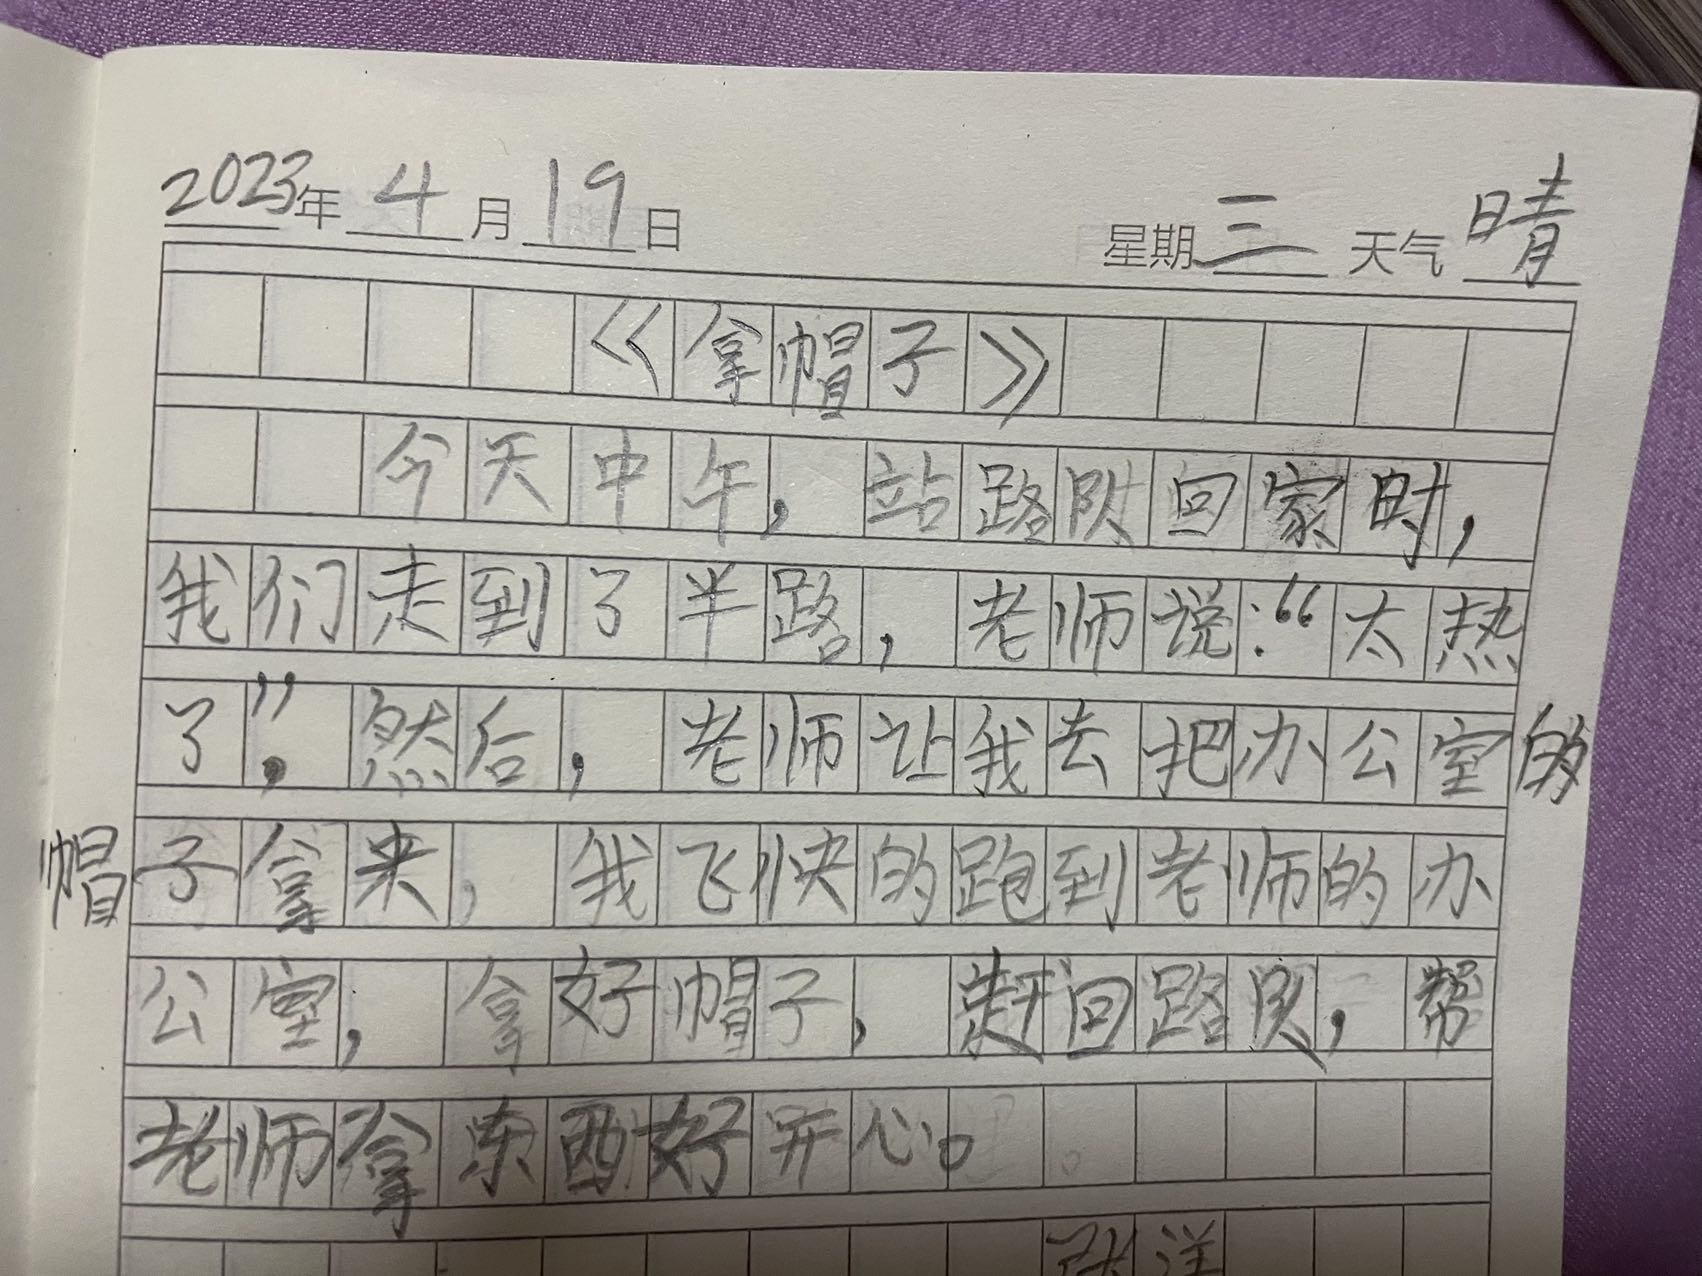 2023年 4月19日 星期三 天气晴
《拿帽子》
今天中午，站路队回家时，
我们走到了半路，老师说：“太热
了”，然后，老师让我去把办公室的
帽子拿来，我飞快的跑到老师的办
公室，拿好帽子，赶回路队，帮
老师拿东西好开心。